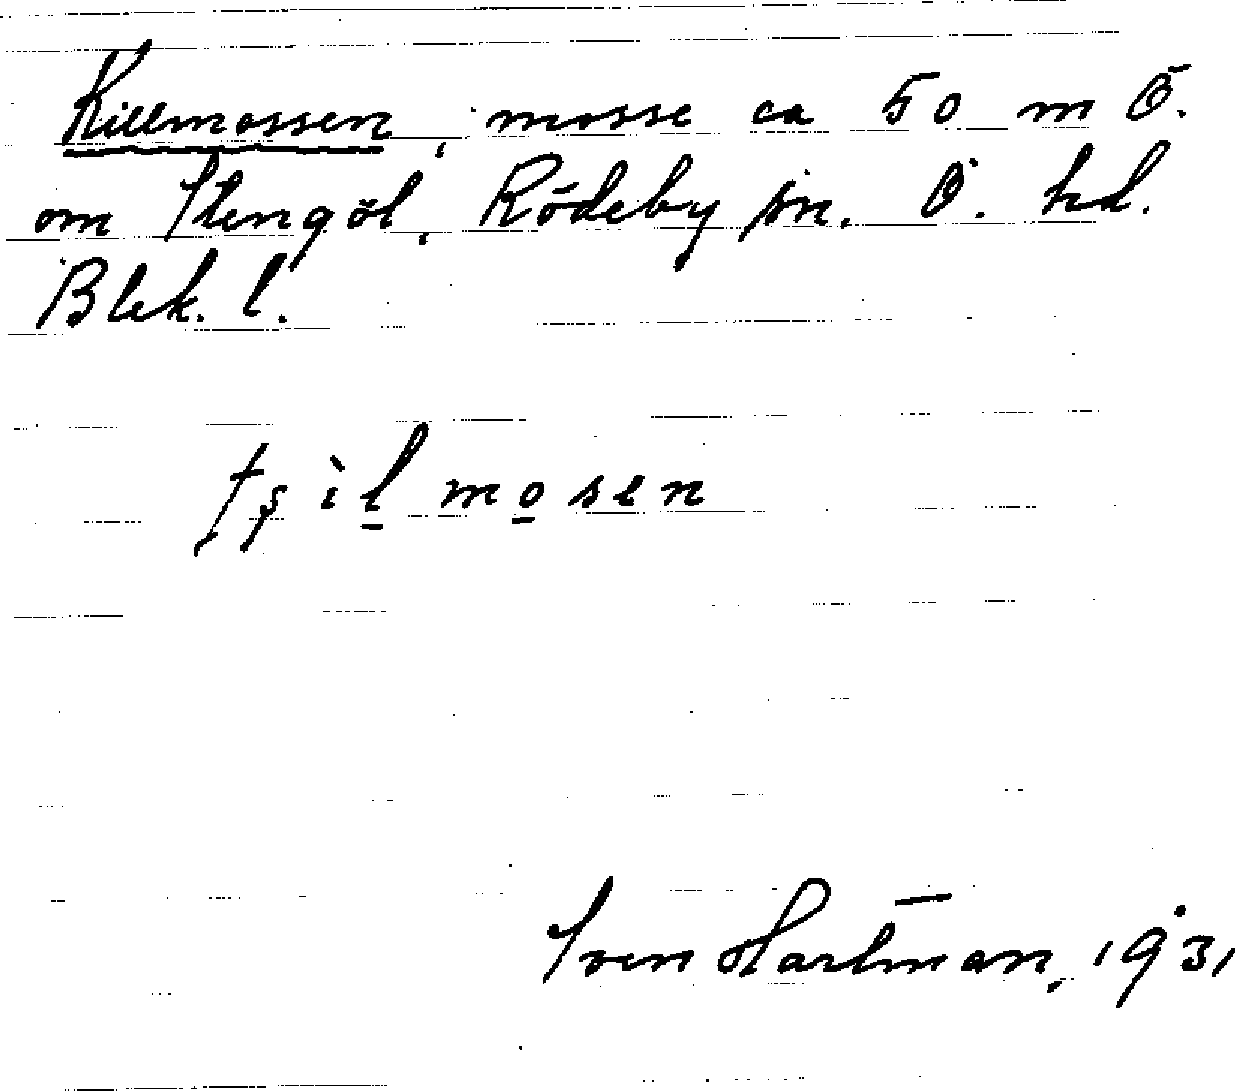 Killmossen, mosse ca 50 m Ö.
om Stengöl, Rödeby sn. Ö. hd.
Blek. l.
tʂìlmosen
Sven Hartman, 1931